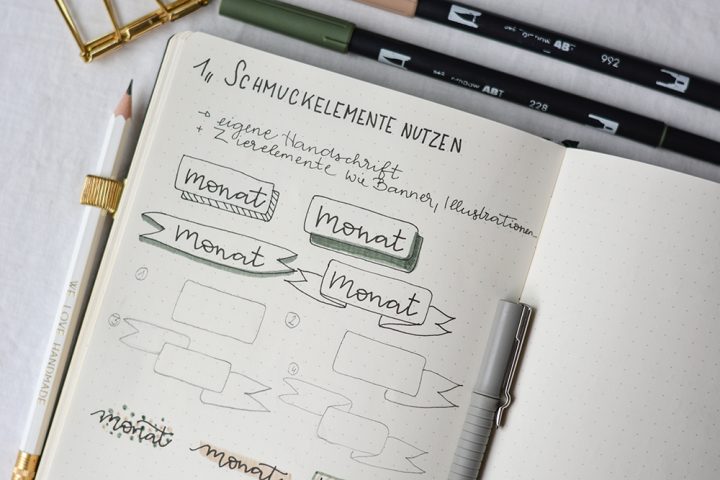 ABT
992
ABT
228
1,, SCHMUCKELEMENTE NUTZEN
→ eigene Handschrift
+ Zierelemente wie Banner, Illustrationen...
monat
monat
monat
monat
1
2
3
4
monat
monat
WE LOVE HANDMADE